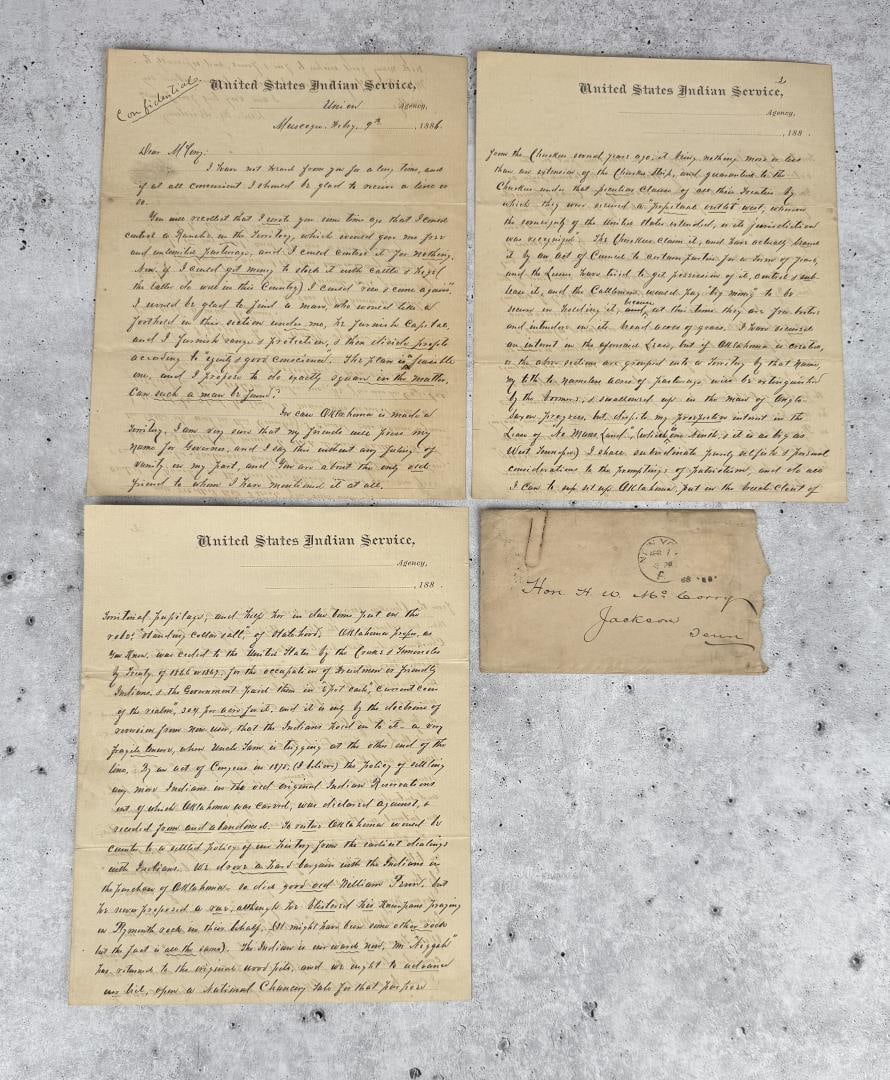 Confidential.
United States Indian Service,
Union Agency,
Muscogee, Feby. 9th 1886.
Dear McCorry:
I have not heard from you for a long time, and
if at all convenient I should be glad to receive a line or
so.
You will recollect that I wrote you some time ago that I could
control a Ranche, in the Territory, which would give me free
and unlimited pasturage, and I could control it for nothing.
Now if I could get money to stock it with cattle & hogs (
the latter do well in this Country) I could "run & come again".
I would be glad to find a man, who would like a
foothold in this section under me, he furnish Capital,
and I furnish range & protection, & then divide profits
according to "equity & good conscience". The plan is a feasible
one, and I propose to do exactly square in the matter.
Can such a man be found?
In case Oklahoma is made a
Territory, I am very sure that my friends will press my
name for Governor, and I say this without any feeling of
vanity on my part, and You are about the only old
friend to whom I have mentioned it at all.
2
United States Indian Service,
Agency,
188
from the Cherokees several years ago, it being nothing more or less
than an extension of the Cherokee Strip, and guaranteed to the
Cherokees under that peculiar clause of all their Treaties by
which they were secured a "perpetual outlet" west, wherever
the sovereignty of the United States extended, or its jurisdiction
was recognized. The Cherokees claim it, and have actually leased
it by an act of Council to certain parties for a term of years,
and the Lessees have tried to get possession of it, control & sub-
lease it, and the Cattlemen would pay "big money" to be
secure in holding it, because at this time they are free lustes
and intruders on its broad acres of grass. I have secured
an interest in the aforesaid Lease, but if Oklahoma is created,
or the above sections are grouped into a Territory by that name,
my title to nameless acres of pasturage will be extinguished
by the boomers, & swallowed up in the maw of Anglo
Saxon progress, but despite my prospective interest in the
Lease of "No Mans Land" (which one Ninth, & it is as big as
West Tennessee) I shall subordinate purely selfish & personal
considerations to the promptings of patriotism, and do all
I can to set up Oklahoma, put in the breech clout of
United States Indian Service,
Agency,
188 .
Territorial pupilage, and help her in due time put on the
robes "standing collar & all", of statehood. Oklahoma proper, as
You know, was ceded to the United States by the Creeks & Seminoles
by Treaty of 1866 or 1867, for the occupation of Freedmen or friendly
Indians, & the Government paid them in "spot cash", "current coin
of the realm", 30¢ per acre for it, and it is only by the doctrine of
remains from non user, that the Indians hold on to it - a very
fragile tenure, when Uncle Sam is tugging at the other end of the
line. By an act of Congress in 1875, (I believe) the policy of settling
any more Indians in the old original Indian Reservations
out of which Oklahoma was carved, was declared against, &
receded from and abandoned. To retire Oklahoma would be
counter to a settled policy of our history from the earliest dealings
with Indians. We drove a hard bargain with the Indians in
the purchase of Oklahoma - so did good old William Penn, but
he never proposed a rue, although he blistered his knee pans praying
on Plymouth rock in their behalf. (It might have been some other rock
but the fact is all the same). The Indian is our wards now, Mr "Niggah"
has returned to the original wood pile, and we ought to advance
our bid, open a National Chancery Sale for that purpose
NEW YO
APR 1
Hon. H. W. McCorry
Jackson
Tenn